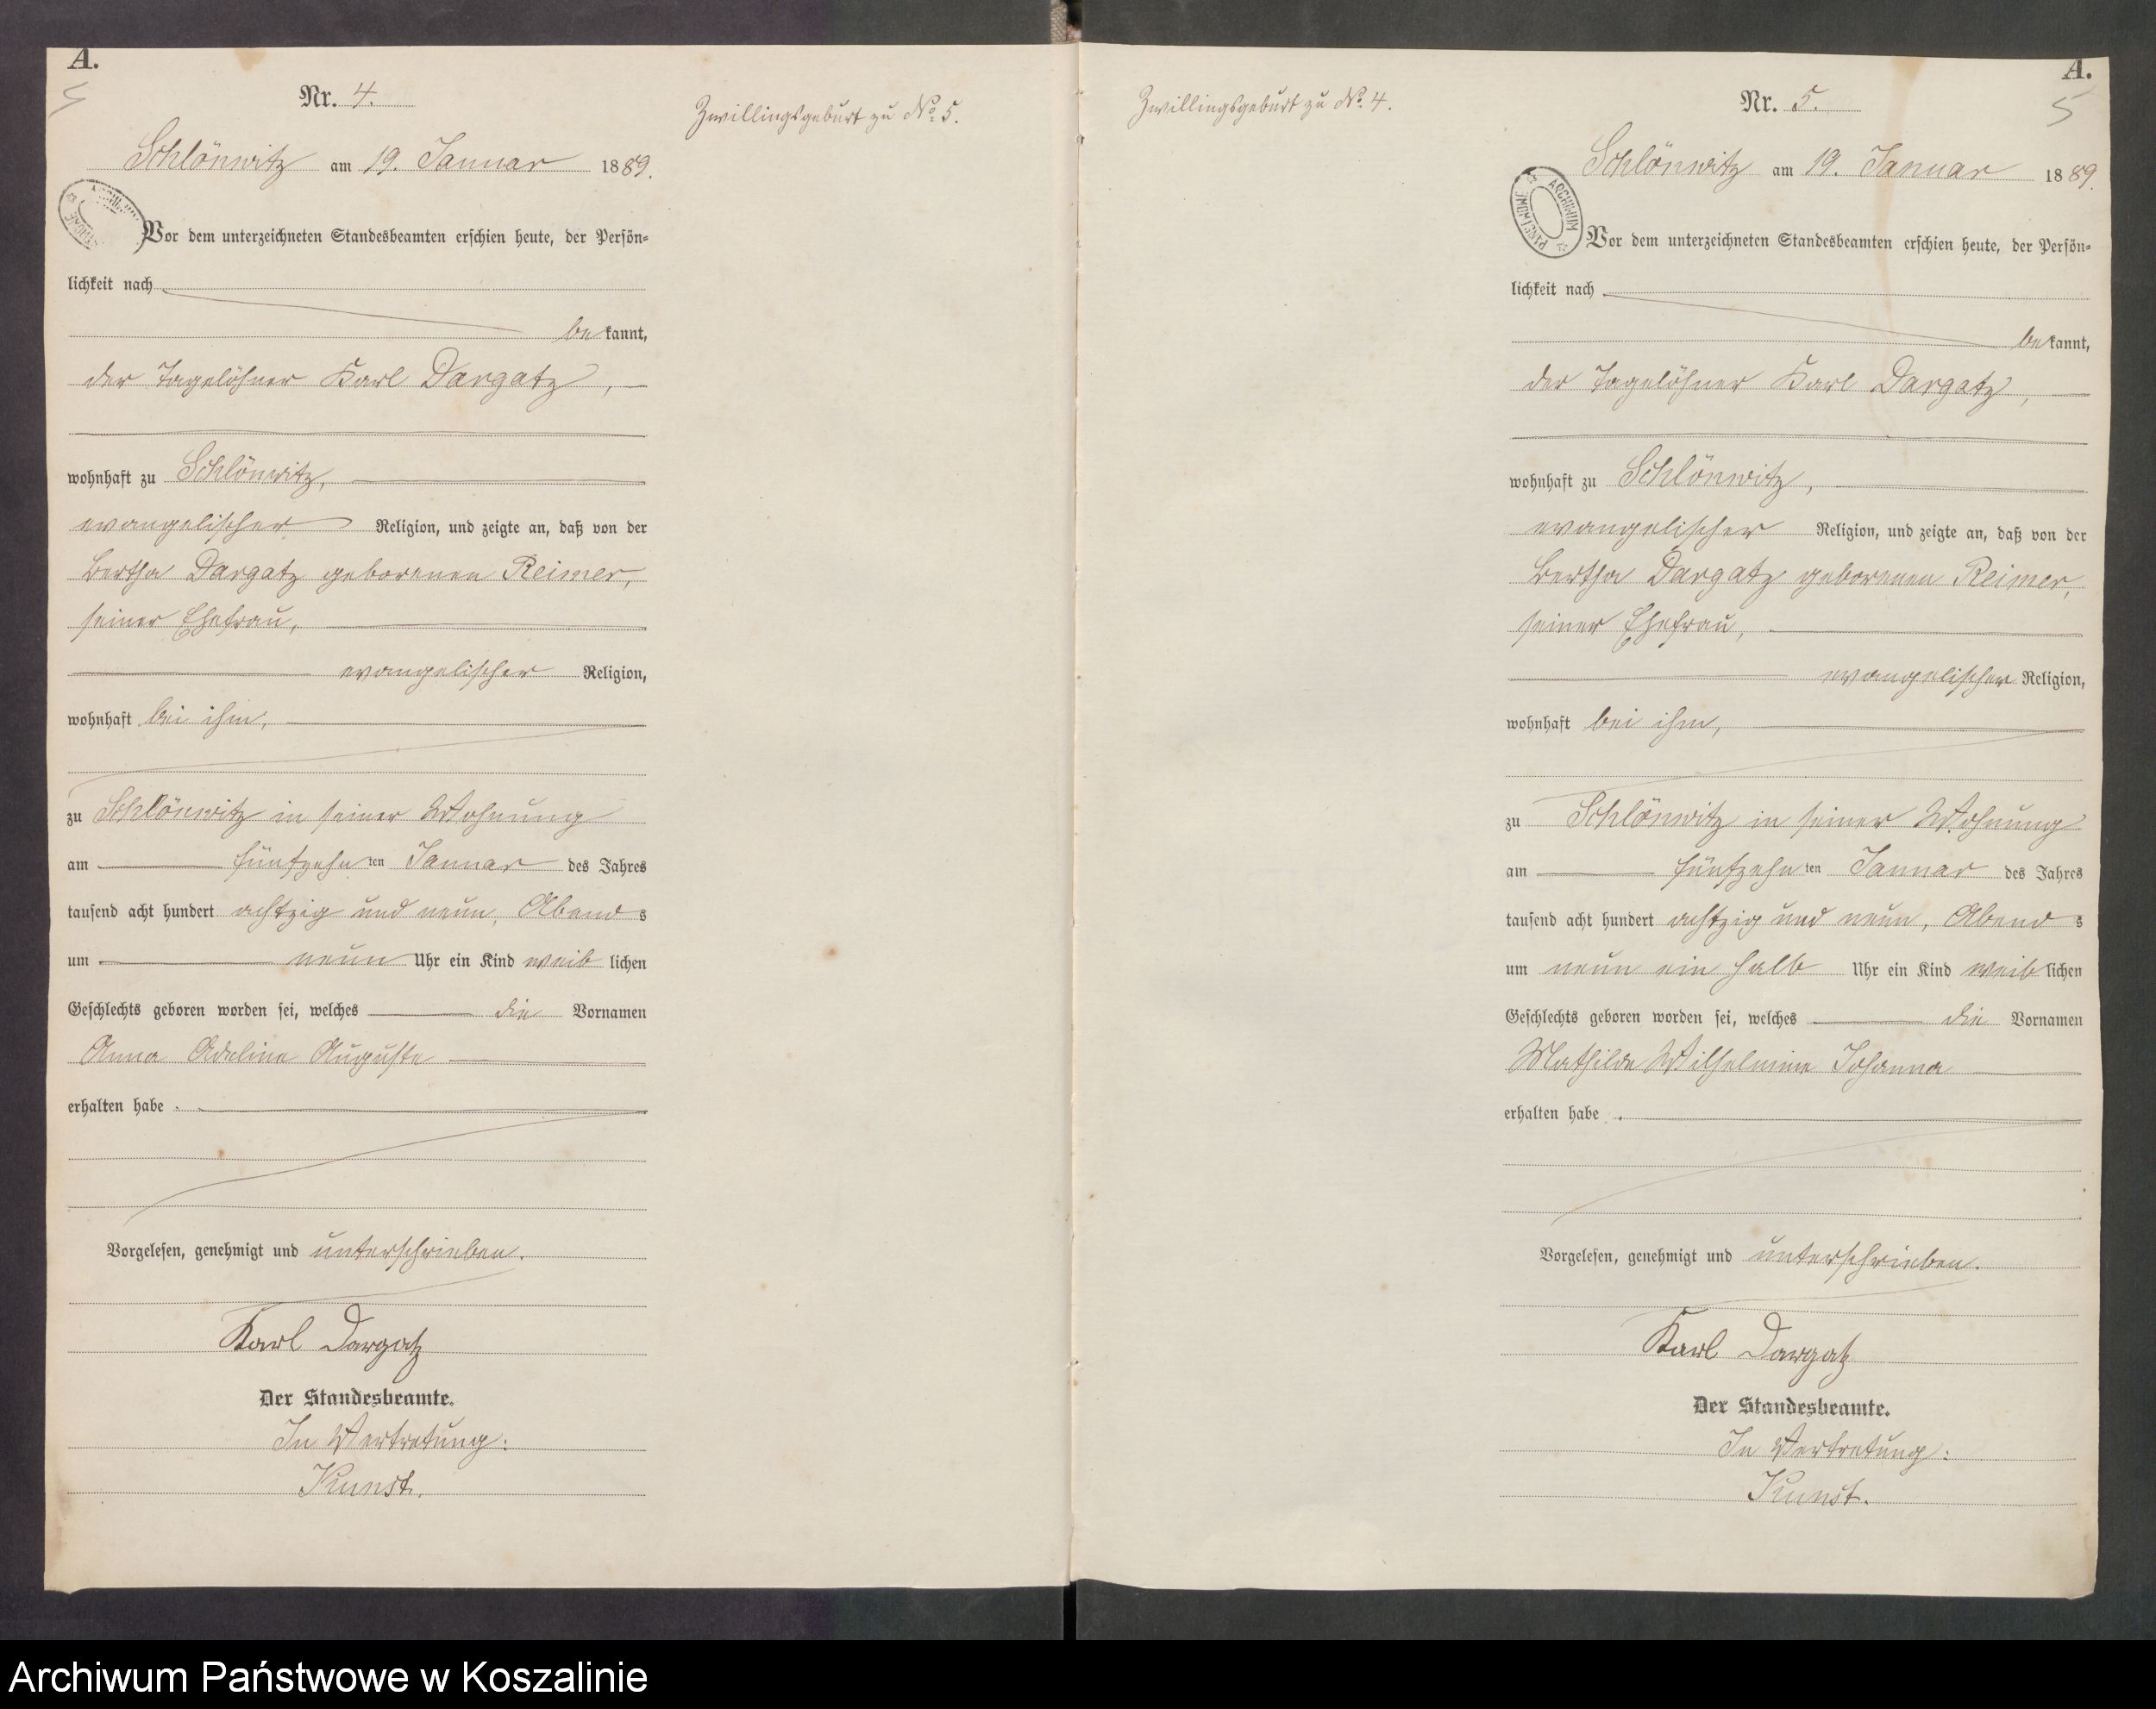 A.
Nr. 4.
Zwillingsgeburt zu No. 5.
Schlönwitz am 19. Januar 1889.
Vor dem unterzeichneten Standesbeamten erschien heute, der Persön=
lichkeit nach
bekannt,
der Tagelöhner Karl Dargatz,
wohnhaft zu Schlönwitz,
evangelischer Religion, und zeigte an, daß von der
Bertha Dargatz geborenen Reimer,
seiner Ehefrau,
evangelischer Religion,
wohnhaft bei ihm,
zu Schlönwitz in seiner Wohnung
am fünfzehnten Januar des Jahres
tausend acht hundert achtzig und neun, Abends
um neun Uhr ein Kind weiblichen
Geschlechts geboren worden sei, welches die Vornamen
Anna Adeline Auguste
erhalten habe.
Vorgelesen, genehmigt und unterschrieben.
Karl Dargatz
Der Standesbeamte.
In Vertretung:
Kunst.
A.
5
Nr. 5.
Zwillingsgeburt zu No. 4.
Schlönwitz am 19. Januar 1889.
ARCHIWUM PAŃSTWOWE
Vor dem unterzeichneten Standesbeamten erschien heute, der Persön=
lichkeit nach
bekannt,
der Tagelöhner Karl Dargatz,
wohnhaft zu Schlönwitz,
evangelischer Religion, und zeigte an, daß von der
Bertha Dargatz geborenen Reimer,
seiner Ehefrau,
evangelischer Religion,
wohnhaft bei ihm,
zu Schlönwitz in seiner Wohnung
am fünfzehnten Januar des Jahres
tausend acht hundert achtzig und neun, Abends
um neun ein halb Uhr ein Kind weiblichen
Geschlechts geboren worden sei, welches die Vornamen
Mathilde Wilhelmine Johanna
erhalten habe.
Vorgelesen, genehmigt und unterschrieben.
Karl Dargatz
Der Standesbeamte.
In Vertretung:
Kunst.
Archiwum Państwowe w Koszalinie